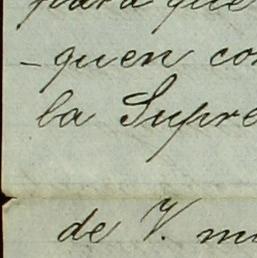 para que
-quen co
la Supre
de V. m